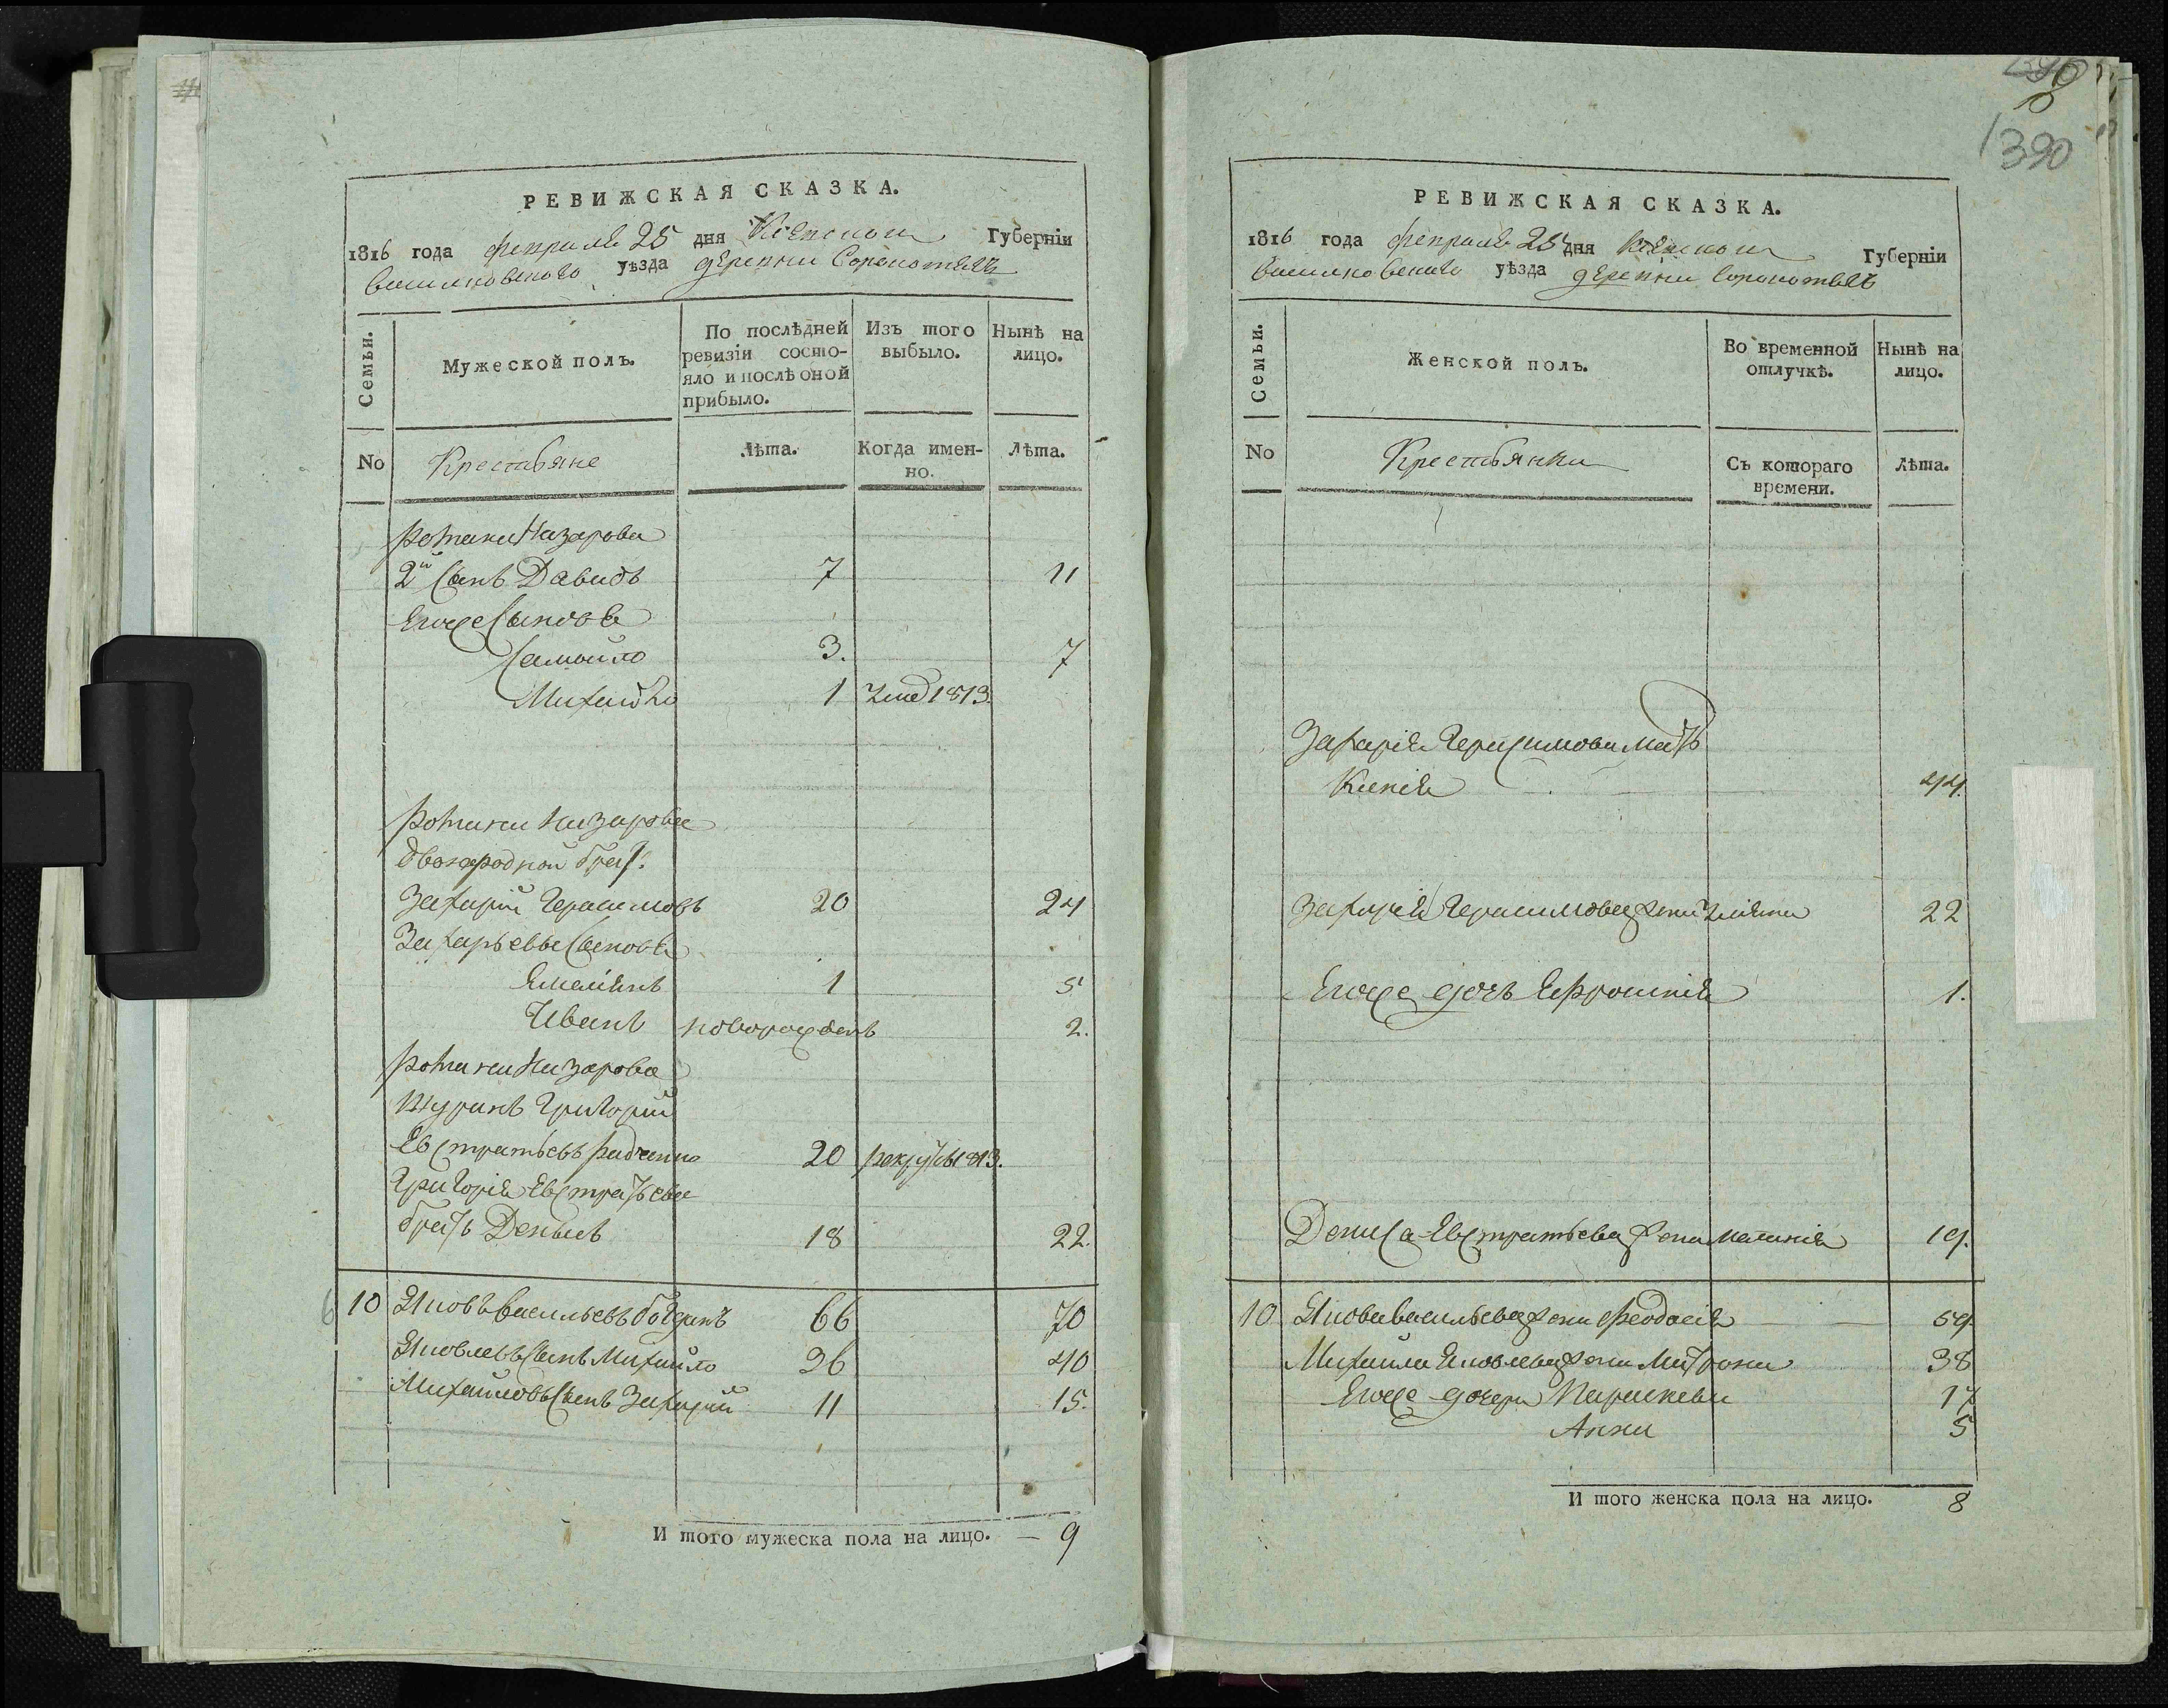 РЕВИЖСКАЯ СКАЗКА.
1816 года февраля 25 дня Кіевской Губерніи
Васильковского уѣзда деревни Соро­котягъ
Семьи.
Мужеской полъ.
По послѣдней ревизіи состояло и послѣ оной прибыло.
Изъ того выбыло.
Нынѣ на лицо.
No
Крестьяне
Лѣта.
Когда именно.
Лѣта.
Потапа Назарова
2й Сынъ Давидъ 7 11
Егоже Сыновья
Самойло 3. 7
Михайло 1 умер 1813.
Потапа Назарова
двоюродной брат:
Захарий Герасимовъ 20 24
Захарьевы Сыновья
Емелианъ 1 5
Иванъ новорожденъ 2.
Потапа Назарова
Шуринъ Григорий
Евстратьевъ 20 рекрутъ 1813.
Григория Евстратьева
братъ Денисъ 18 22.
10 Яковъ Васильевъ 66 70
Яковлевъ Сынъ Михайло 36 40
Михайловъ Сынъ Захарий 11 15.
И того мужеска пола на лицо. — 9
390
РЕВИЖСКАЯ СКАЗКА.
1816 года февраля 25 дня Кіевской Губерніи
Васильковского уѣзда деревни Сорокотягъ
Семьи.
Женской полъ.
Во временной отлучкѣ.
Нынѣ на лицо.
No
Крестьянки
Съ котораго времени.
Лѣта.
Захария Герасимова мать
Ксения 44.
Захария Герасимова жена Улияна 22
Егоже дочь Ефросиния 1.
Дениса Евстратьева жена Мелания 19.
10 Якова Васильева жена Феодосия 59
Михаила Яковлева жена Матрона 38
Егоже дочери Параскева 17
Анна 5
И того женска пола на лицо. 8